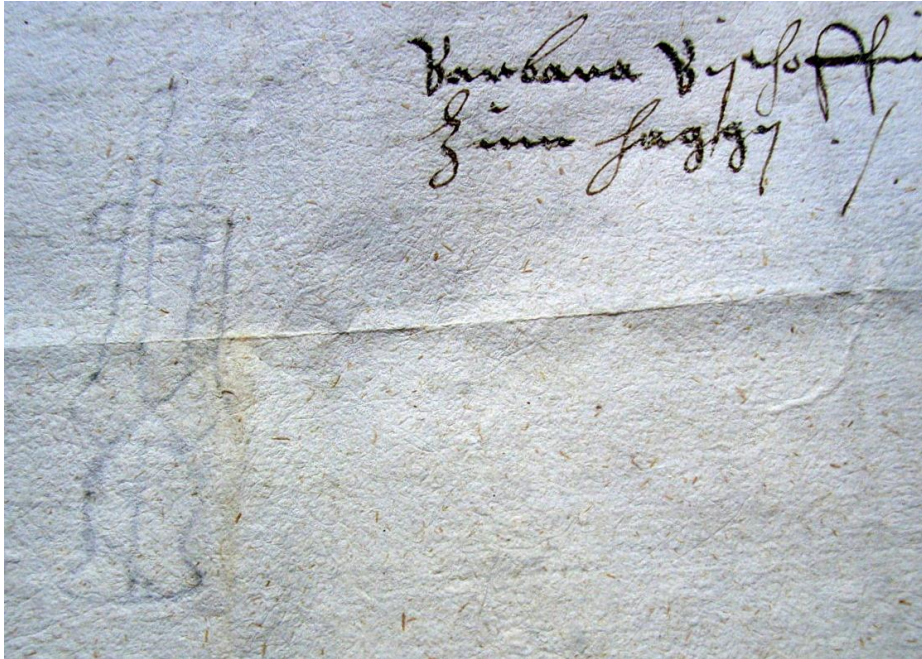 Barbara Byschoffin
Zum haggy /